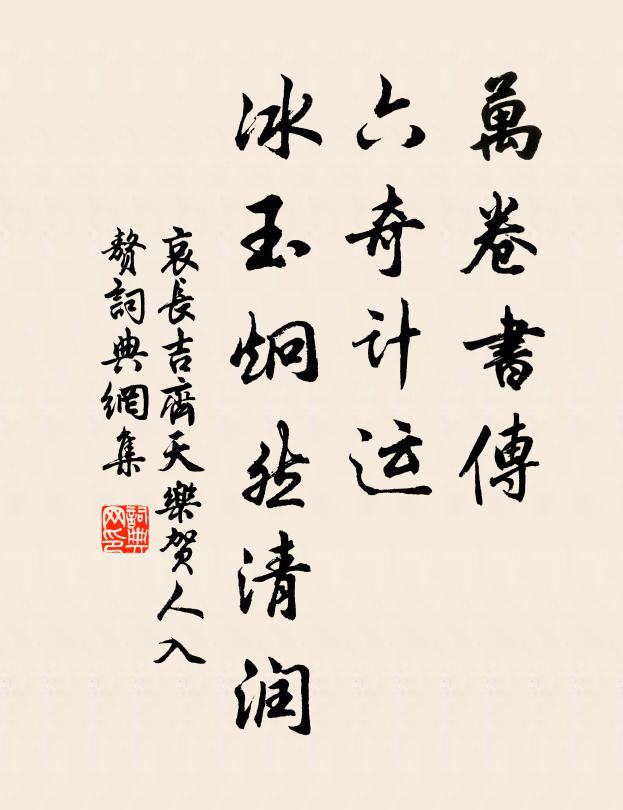 萬卷書傳
六奇计运
冰玉炯然清润
哀長吉齊天樂贺人入
贅詞典網集
詞典网印